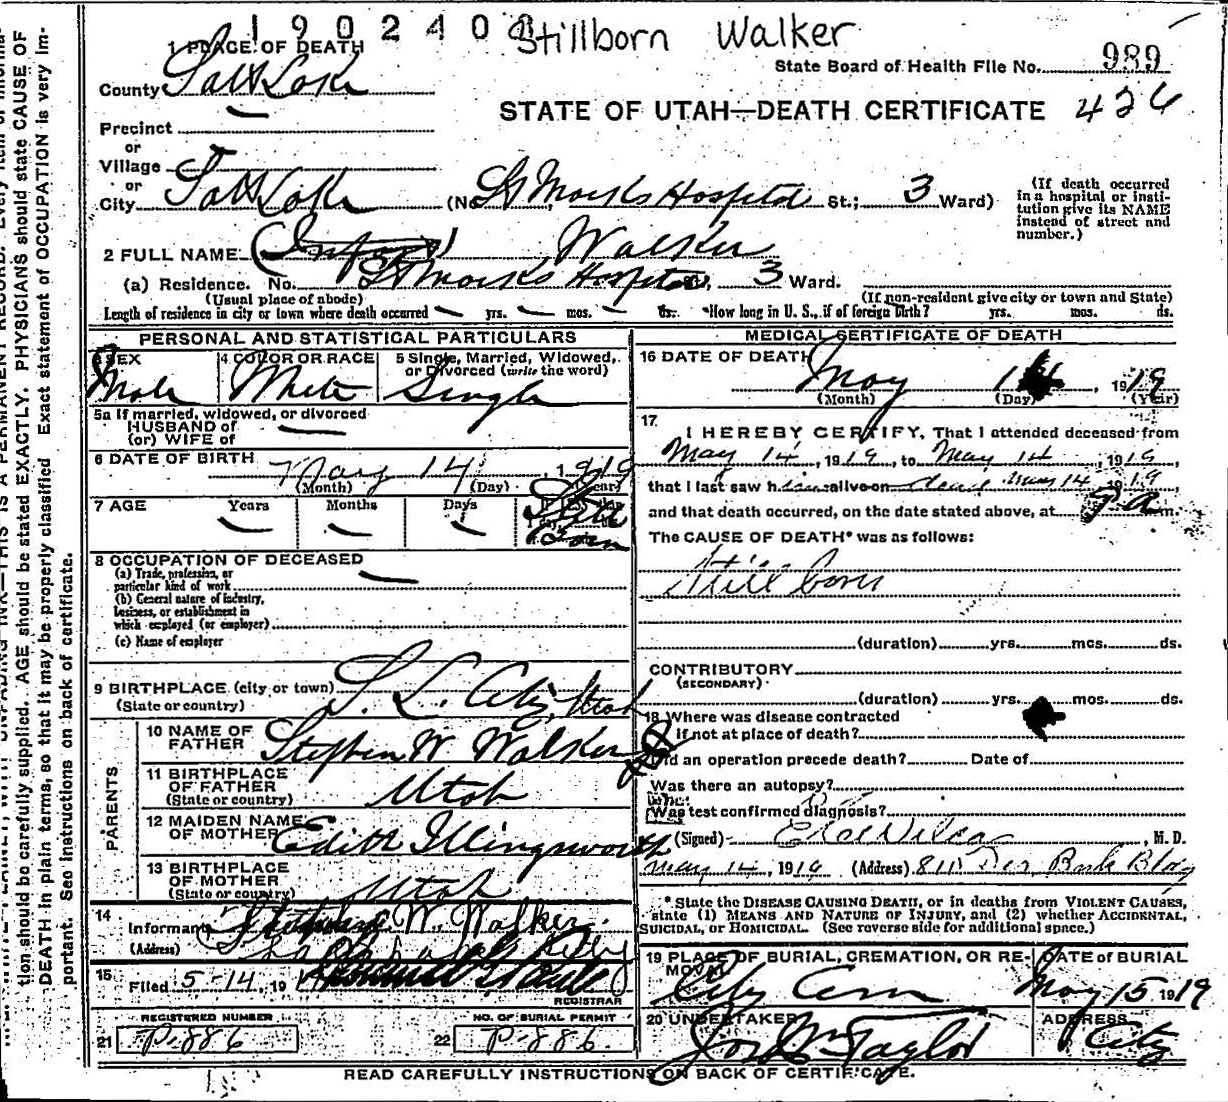 190240
Stillborn Walker
1 PLACE OF DEATH
State Board of Health File No. 989
County Salt Lake
STATE OF UTAH—DEATH CERTIFICATE 426
Precinct
or
Village
or
City Salt Lake (No. St Marks Hospital St.; 3 Ward)
(If death occurred in a hospital or insti-
tution give its NAME
instead of street and
number.)
2 FULL NAME (Infant) Walker
(a) Residence. No. St Marks Hospital St., 3 Ward.
(Usual place of abode) (If non-resident give city or town and State)
Length of residence in city or town where death occurred yrs. mos. ds. How long in U. S., if of foreign birth? yrs. mos. ds.
PERSONAL AND STATISTICAL PARTICULARS
3 SEX 4 COLOR OR RACE 5 Single, Married, Widowed,
or Divorced (write the word)
Male White Single
5a If married, widowed, or divorced
HUSBAND of
(or) WIFE of
6 DATE OF BIRTH May 14, 1919
(Month) (Day) (Year)
7 AGE Years Months Days
Still Born
8 OCCUPATION OF DECEASED
(a) Trade, profession, or
particular kind of work
(b) General nature of industry,
business, or establishment in
which employed (or employer)
(c) Name of employer
9 BIRTHPLACE (city or town) S. L. City, Utah
(State or country)
PARENTS
10 NAME OF
FATHER Stephen W Walker
11 BIRTHPLACE
OF FATHER Utah
(State or country)
12 MAIDEN NAME
OF MOTHER Edith Illingsworth
13 BIRTHPLACE
OF MOTHER Utah
(State or country)
14
Informant Stephen W. Walker
(Address)
15
Filed 5-14, 19
REGISTRAR
REGISTERED NUMBER NO. OF BURIAL PERMIT
21 P-886 22 P-886
MEDICAL CERTIFICATE OF DEATH
16 DATE OF DEATH May 14, 1919
(Month) (Day) (Year)
17
I HEREBY CERTIFY, That I attended deceased from
May 14, 1919, to May 14, 1919,
that I last saw him alive on dead May 14 1919,
and that death occurred, on the date stated above, at 9 a m.
The CAUSE OF DEATH* was as follows:
Still born
(duration) yrs. mos. ds.
CONTRIBUTORY
(SECONDARY)
(duration) yrs. mos. ds.
18 Where was disease contracted
if not at place of death?
Did an operation precede death? Date of
Was there an autopsy?
Was test confirmed diagnosis?
(Signed) M. D.
May 14, 1919 (Address) 811 Des Bank Bldg
*State the DISEASE CAUSING DEATH, or in deaths from VIOLENT CAUSES,
state (1) MEANS AND NATURE OF INJURY, and (2) whether ACCIDENTAL,
SUICIDAL, or HOMICIDAL. (See reverse side for additional space.)
19 PLACE OF BURIAL, CREMATION, OR RE-
MOVAL DATE OF BURIAL
City Cem May 15 1919
20 UNDERTAKER ADDRESS
Jos Wm Taylor City
READ CAREFULLY INSTRUCTIONS ON BACK OF CERTIFICATE.
tion should be carefully supplied. AGE should be stated EXACTLY. PHYSICIANS should state CAUSE OF
DEATH in plain terms, so that it may be properly classified. Exact statement of OCCUPATION is very im-
portant. See instructions on back of certificate.